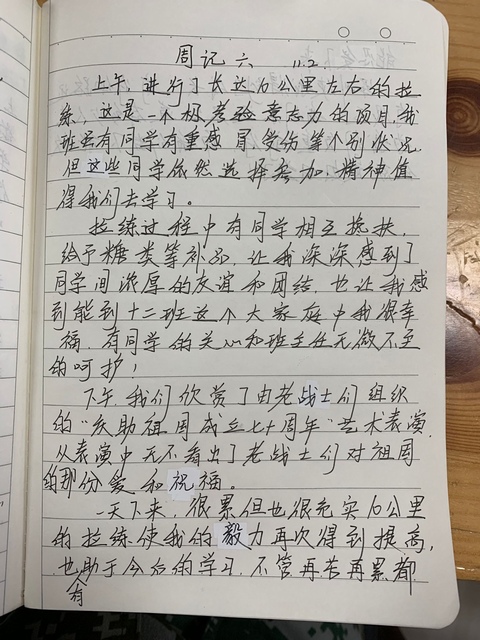 周记六 11.2
上午,进行了长达10公里左右的拉
练,这是一个极考验意志力的项目,我
班虽有同学有重感冒,受伤等个别状况,
但这些同学依然选择参加,精神值
得我们去学习。
拉练过程中有同学相互搀扶,
给予糖类等补品,让我深深感到了
同学间浓厚的友谊和团结,也让我感
到能到十二班这个大家庭中我很幸
福,有同学的关心和班主任无微不至
的呵护!
下午,我们欣赏了由老战士们组织
的“庆助祖国成立七十周年”艺术表演,
从表演中无不看出了老战士们对祖国
的那份爱和祝福。
一天下来,很累但也很充实,10公里
的拉练使我的毅力再次得到提高,
也助于今后的学习,不管再苦再累都
有